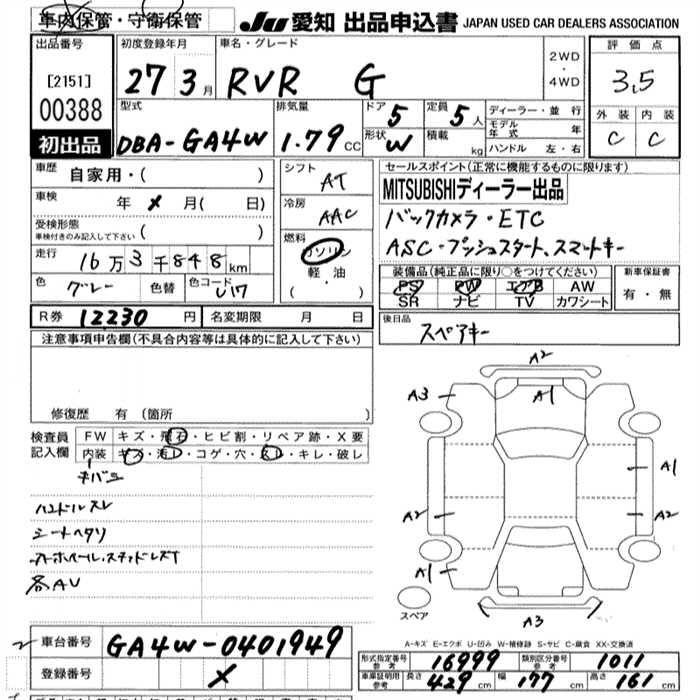 車内保管・守衛保管
JU 愛知 出品申込書 JAPAN USED CAR DEALERS ASSOCIATION
出品番号
[2151]
00388
初出品
初度登録年月
27 3月
車名・グレード
RVR G
2WD
・
4WD
評価点
3.5
外装 内装
C C
型式
DBA-GA4W
排気量
1.79 CC
ドア 5
形状 W
定員 5人
積載 kg
ディーラー・並行
モデル年式 年
ハンドル 左・右
車歴 自家用・( )
車検 年 メ 月( 日)
受検形態
車検付きのみ記入して下さい ( )
走行 16万3千848km
色 グレー 色替 色コード U17
シフト
AT
冷房
AAC
燃料
ガソリン
軽油
( ・ )
セールスポイント(正常に機能するものに限ります)
MITSUBISHIディーラー出品
バックカメラ・ETC
ASC・プッシュスタート、スマートキー
装備品(純正品に限り○をつけてください)
PS PW エアB AW
SR ナビ TV カワシート
新車保証書
有・無
R券 12230 円 名変期限 月 日
後日品
スペアキー
注意事項申告欄(不具合内容等は具体的に記入して下さい)
修復歴 有(箇所 )
検査員記入欄
FW キズ・飛石・ヒビ割・リペア跡・X要
内装 キズ・汚レ・コゲ・穴・スレ・キレ・破レ
ハンドルスレ
シートヘタリ
各AU
A2
A3
A1
A1
A2
A2
A1
A3
スペア
A-キズ E-エクボ U-凹み W-補修跡 S-サビ C-腐食 XX-交換済
車台番号 GA4W-0401949
登録番号 メ
形式指定番号参考 16999 類別区分番号参考 1011
車庫証明用参考 長さ 429 cm 幅 177 cm 高さ 161 cm